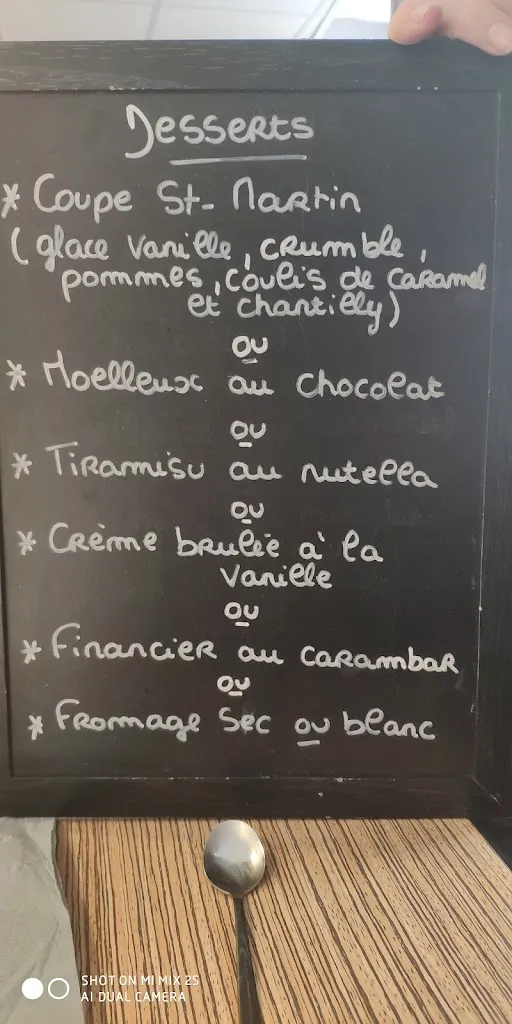 Desserts
* Coupe St-Martin
(glace vanille, crumble,
pommes, coulis de caramel
et chantilly)
ou
* Moelleux au chocolat
ou
* Tiramisu au nutella
ou
* Crème brulée à la
vanille
ou
* Financier au carambar
ou
* Fromage sec ou blanc
SHOT ON MI MIX 2S
AI DUAL CAMERA